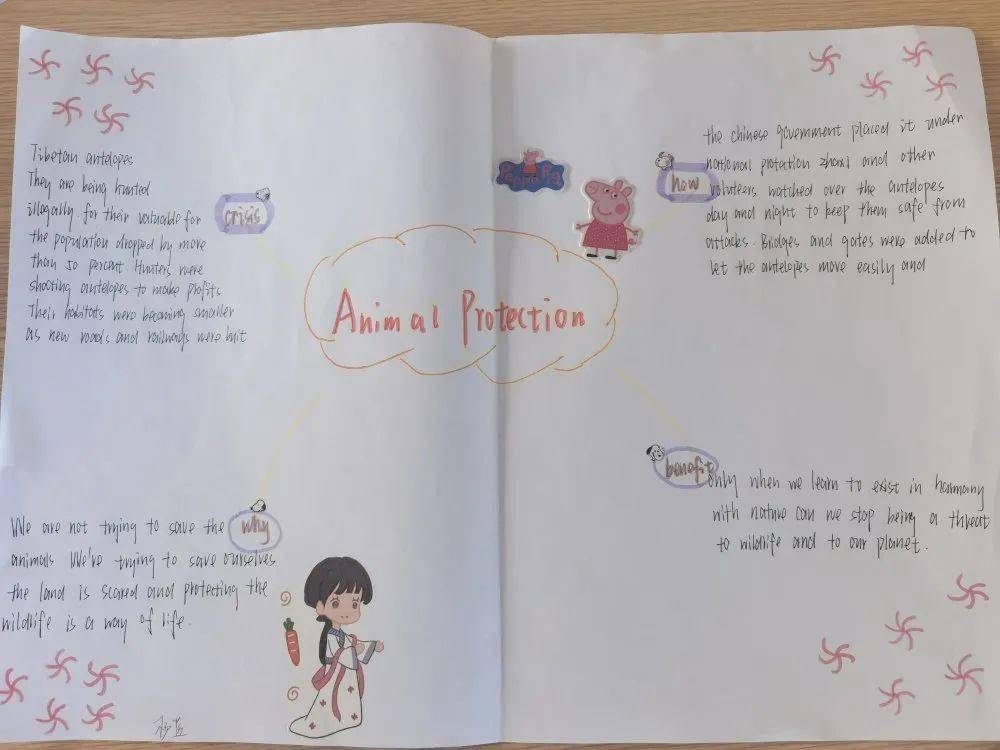 Tibetan antelopes
They are being hunted
illegally for their valuable for
the population dropped by more
than 50 percent. Hunters were
shooting antelopes to make profits
Their habitats were becoming smaller
as new roads and railways were buit
crisis
Peppa Pig
how
the chinese government placed it under
national protection zhaxi and other
voluteers watched over the antelopes
day and night to keep them safe from
attacks. Bridges and gates were added to
let the antelopes move easily and
Animal Protection
why
We are not trying to save the
animals We're trying to save ourselves
the land is scared and protecting the
wildlife is a way of life.
benefit
only when we learn to exist in harmony
with nature can we stop being a threat
to wildlife and to our planet.